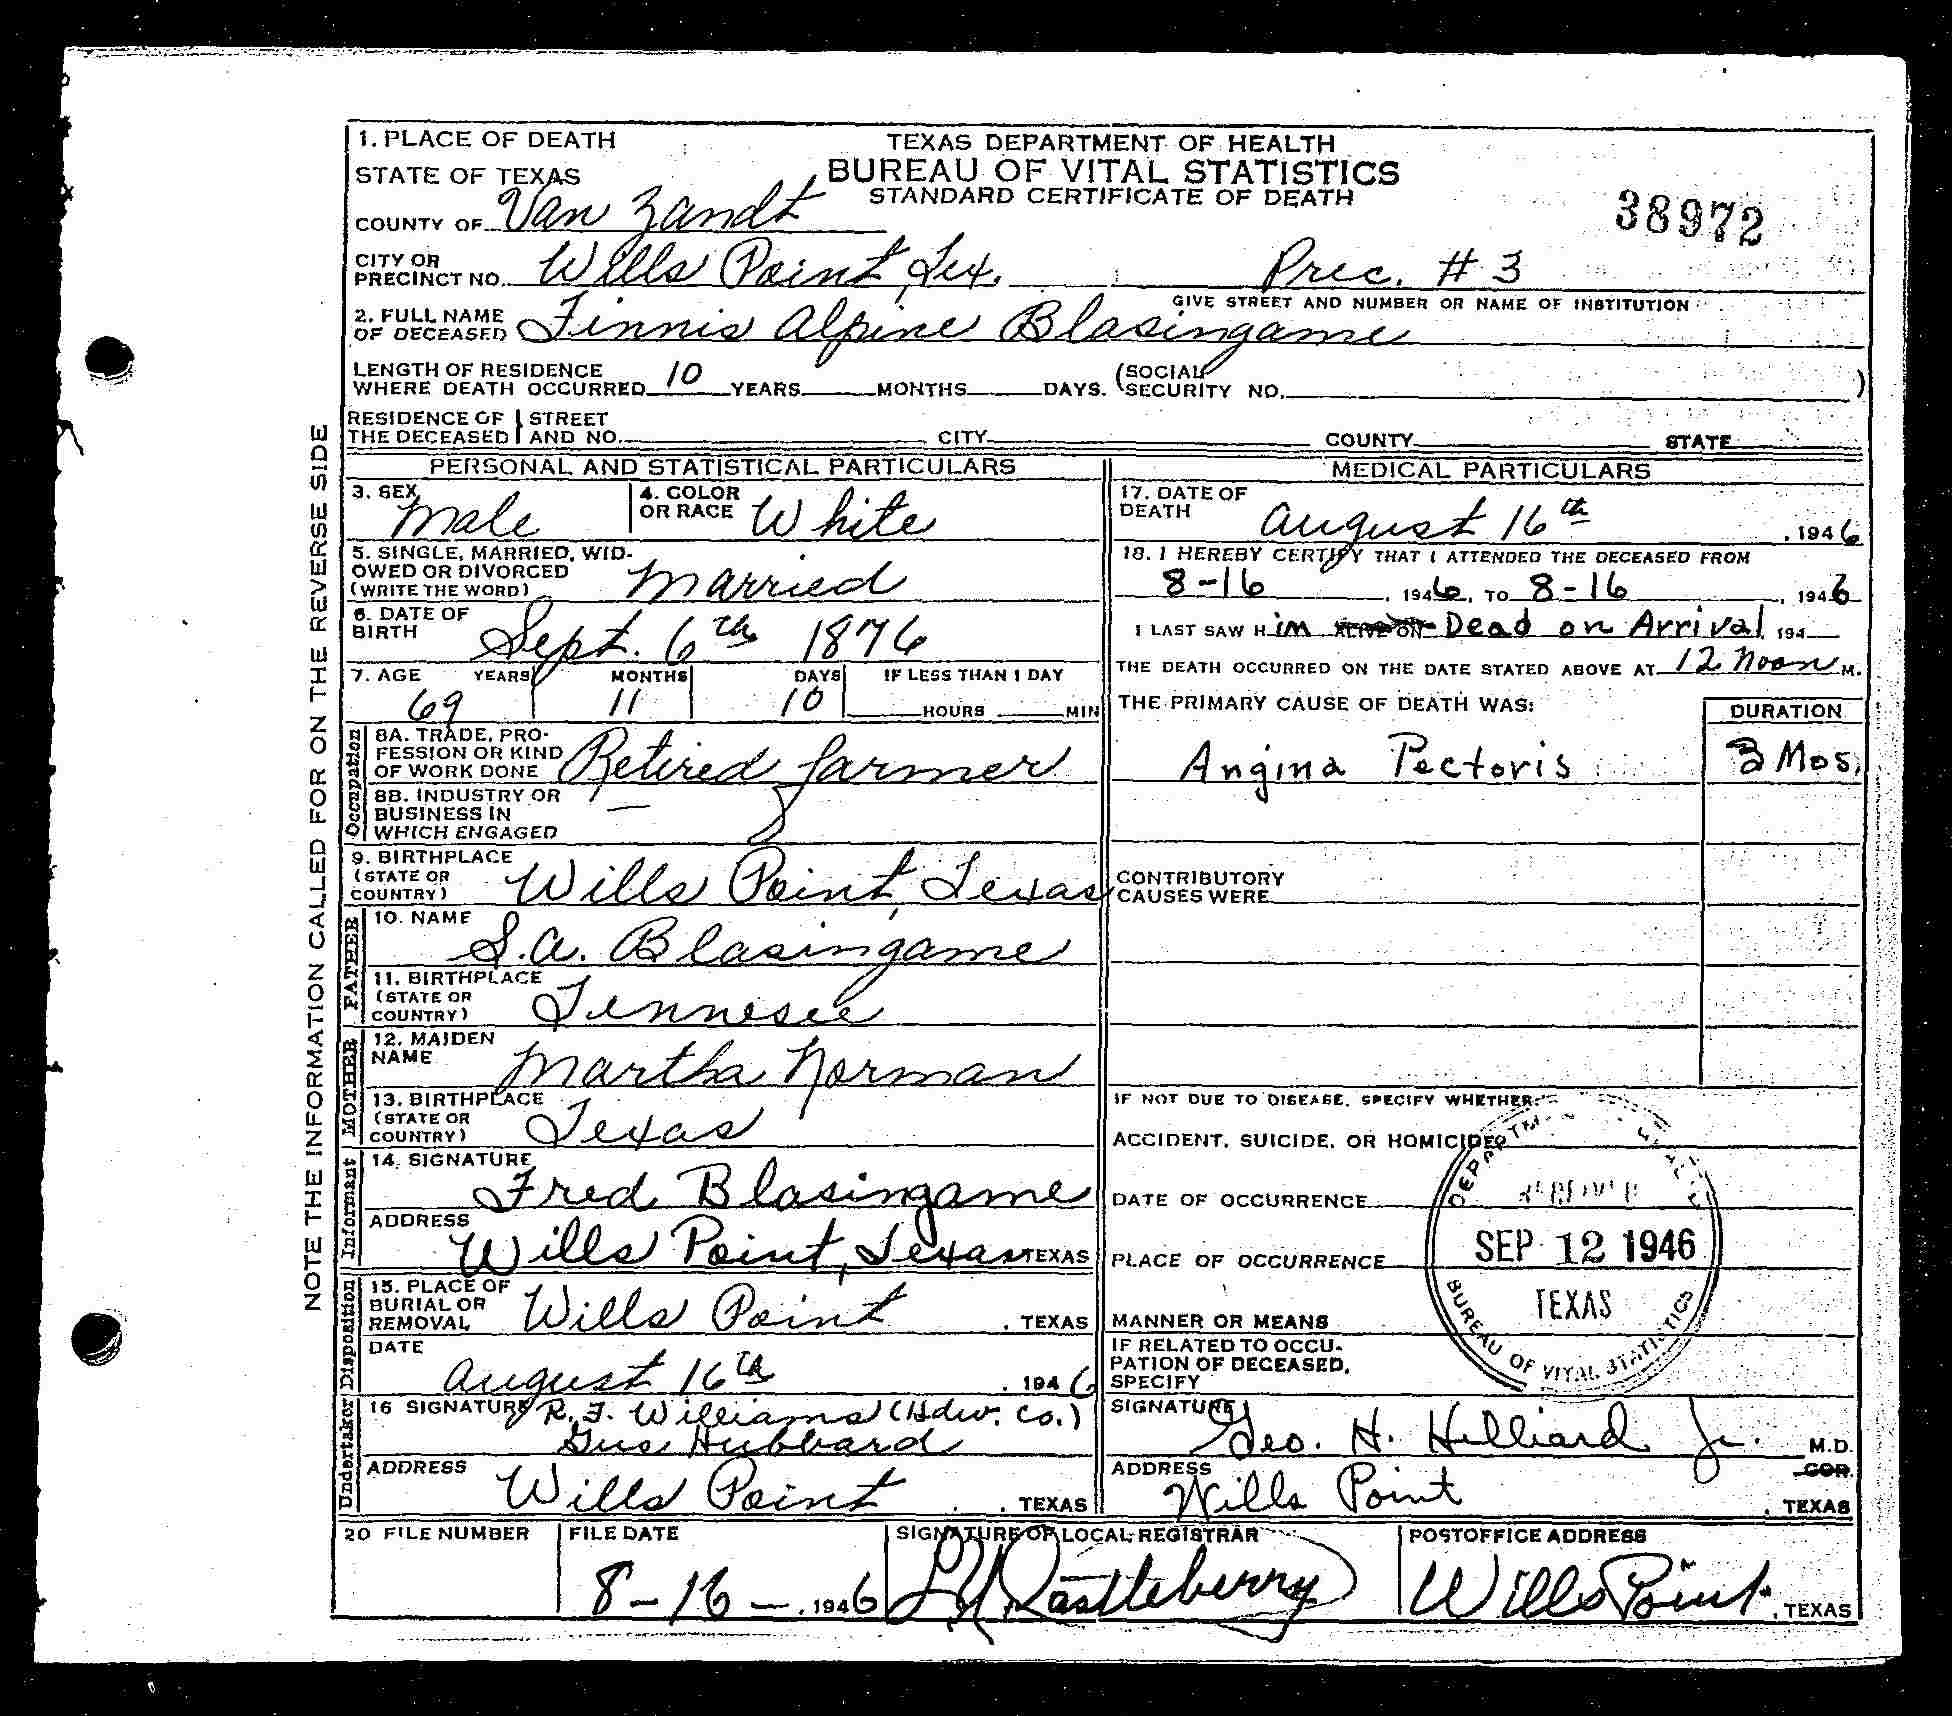 1. PLACE OF DEATH
TEXAS DEPARTMENT OF HEALTH
BUREAU OF VITAL STATISTICS
STANDARD CERTIFICATE OF DEATH
38972
STATE OF TEXAS
COUNTY OF Van Zandt
CITY OR PRECINCT NO. Wills Point, Tex. Prec. # 3
GIVE STREET AND NUMBER OR NAME OF INSTITUTION
2. FULL NAME OF DECEASED Finnis Alpine Blasingame
LENGTH OF RESIDENCE WHERE DEATH OCCURRED 10 YEARS MONTHS DAYS. (SOCIAL SECURITY NO. )
RESIDENCE OF THE DECEASED STREET AND NO. CITY COUNTY STATE
NOTE THE INFORMATION CALLED FOR ON THE REVERSE SIDE
PERSONAL AND STATISTICAL PARTICULARS
3. SEX Male 4. COLOR OR RACE White
5. SINGLE, MARRIED, WIDOWED OR DIVORCED (WRITE THE WORD) Married
6. DATE OF BIRTH Sept. 6th 1876
7. AGE YEARS MONTHS DAYS IF LESS THAN 1 DAY
69 11 10 HOURS MIN
Occupation
8A. TRADE, PROFESSION OR KIND OF WORK DONE Retired farmer
8B. INDUSTRY OR BUSINESS IN WHICH ENGAGED —
9. BIRTHPLACE (STATE OR COUNTRY) Wills Point, Texas
FATHER
10. NAME S.A. Blasingame
11. BIRTHPLACE (STATE OR COUNTRY) Tennesee
MOTHER
12. MAIDEN NAME Martha Norman
13. BIRTHPLACE (STATE OR COUNTRY) Texas
Informant
14. SIGNATURE Fred Blasingame
ADDRESS Wills Point, Texas TEXAS
Disposition
15. PLACE OF BURIAL OR REMOVAL Wills Point, TEXAS
DATE August 16th, 1946
Undertaker
16 SIGNATURE R. F. Williams (Hdw. Co.)
Gus Hubbard
ADDRESS Wills Point, TEXAS
MEDICAL PARTICULARS
17. DATE OF DEATH August 16th, 1946
18. I HEREBY CERTIFY THAT I ATTENDED THE DECEASED FROM
8-16, 1946, TO 8-16, 1946
I LAST SAW H im ALIVE ON Dead on Arrival 194
THE DEATH OCCURRED ON THE DATE STATED ABOVE AT 12 Noon M.
THE PRIMARY CAUSE OF DEATH WAS: DURATION
Angina Pectoris 3 Mos.
CONTRIBUTORY CAUSES WERE
IF NOT DUE TO DISEASE, SPECIFY WHETHER:
ACCIDENT, SUICIDE, OR HOMICIDE
DATE OF OCCURRENCE
PLACE OF OCCURRENCE
MANNER OR MEANS
IF RELATED TO OCCUPATION OF DECEASED, SPECIFY
SEP 12 1946
TEXAS
BUREAU OF VITAL STATISTICS
SIGNATURE Geo. H. Hilliard Jr. M.D.
COR.
ADDRESS Wills Point, TEXAS
20 FILE NUMBER FILE DATE SIGNATURE OF LOCAL REGISTRAR POSTOFFICE ADDRESS
8-16-, 1946 Castleberry Wills Point, TEXAS